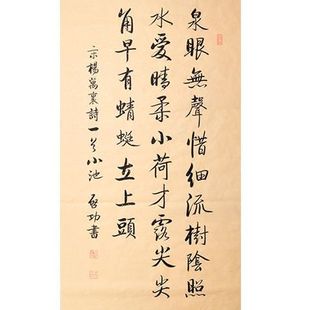 泉眼無聲惜細流樹陰照
水愛晴柔小荷才露尖尖
角早有蜻蜓立上頭
宗楊萬裏詩一首小池 啓功書